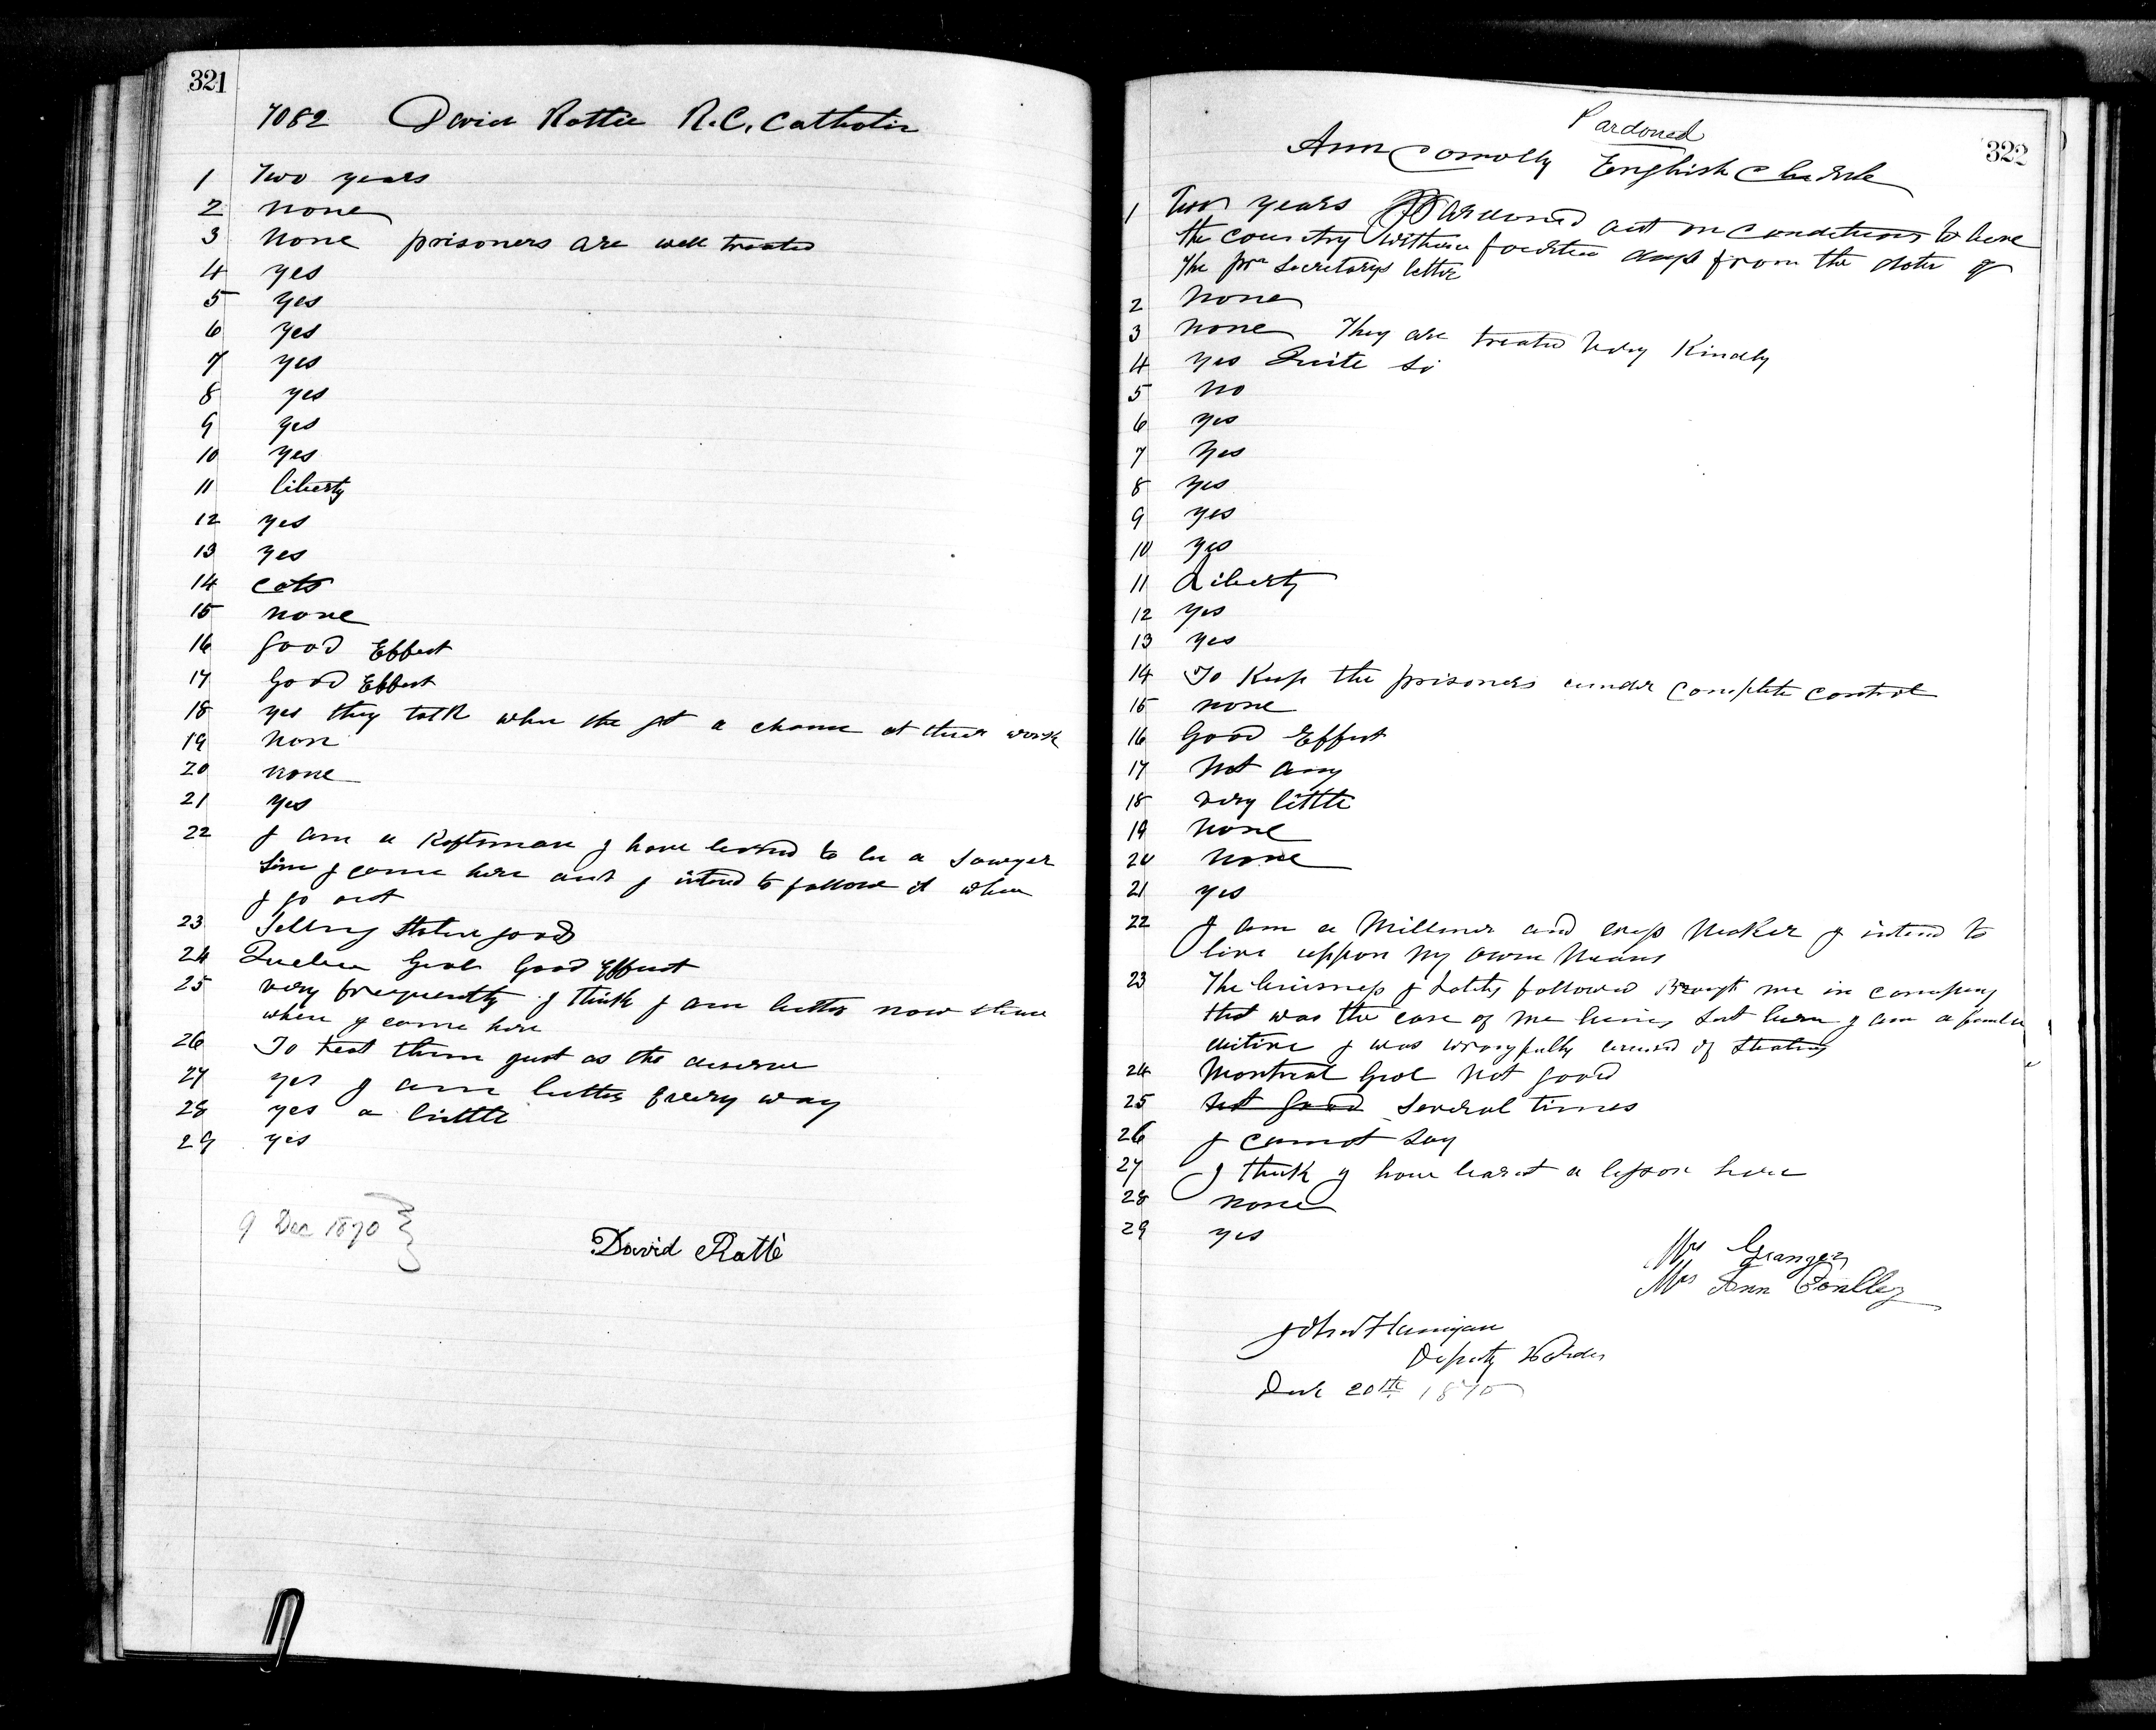 321
7082 David Rattie R.C. Catholic
1 Two years
2 none
3 none prisoners are well treated
4 yes
5 yes
6 yes
7 yes
8 yes
9 yes
10 yes
11 liberty
12 yes
13 yes
14 cats
15 none
16 good Effect
17 Good Effect
18 yes they talk when the get a chance at their work
19 non
20 none
21 yes
22 I am a Raftsman I have lerned to be a Sawyer
I came here and I intend to follow it when
I go out
23 good
24 Quebec Goal Good Effect
25 very frequently I think I am better now
when I came here
26 To treat them just as the deserve
27 yes I am better Every way
28 yes a little
29 yes
9 Dec 1870
David Ratté
322
Pardoned
Ann Connolly English Church
1 Two years Pardoned out on conditions to leave
the country within fourteen days from the date of
the prv Secretarys letter
2 none
3 none They are treated very Kindly
4 yes Quite so
5 no
6 yes
7 yes
8 yes
9 yes
10 yes
11 Liberty
12 yes
13 yes
14 To Keep the prisoners under complete control
15 none
16 Good Effect
17 Not any
18 very little
19 none
20 none
21 yes
22 I am a Milliner and Maker I intend to
live uppon my own Means
23 The business I Lately followed Brought me in company
that was the cause of me being I am a
I was wrongfully of
24 Montreal Goal Not good
25 Not good Several times
26 I cannot say
27 I think I have learnt a lesson here
28 none
29 yes
Mrs Granger
Mrs Ann Conlley
John Flanigan
Deputy Warden
20th 1870